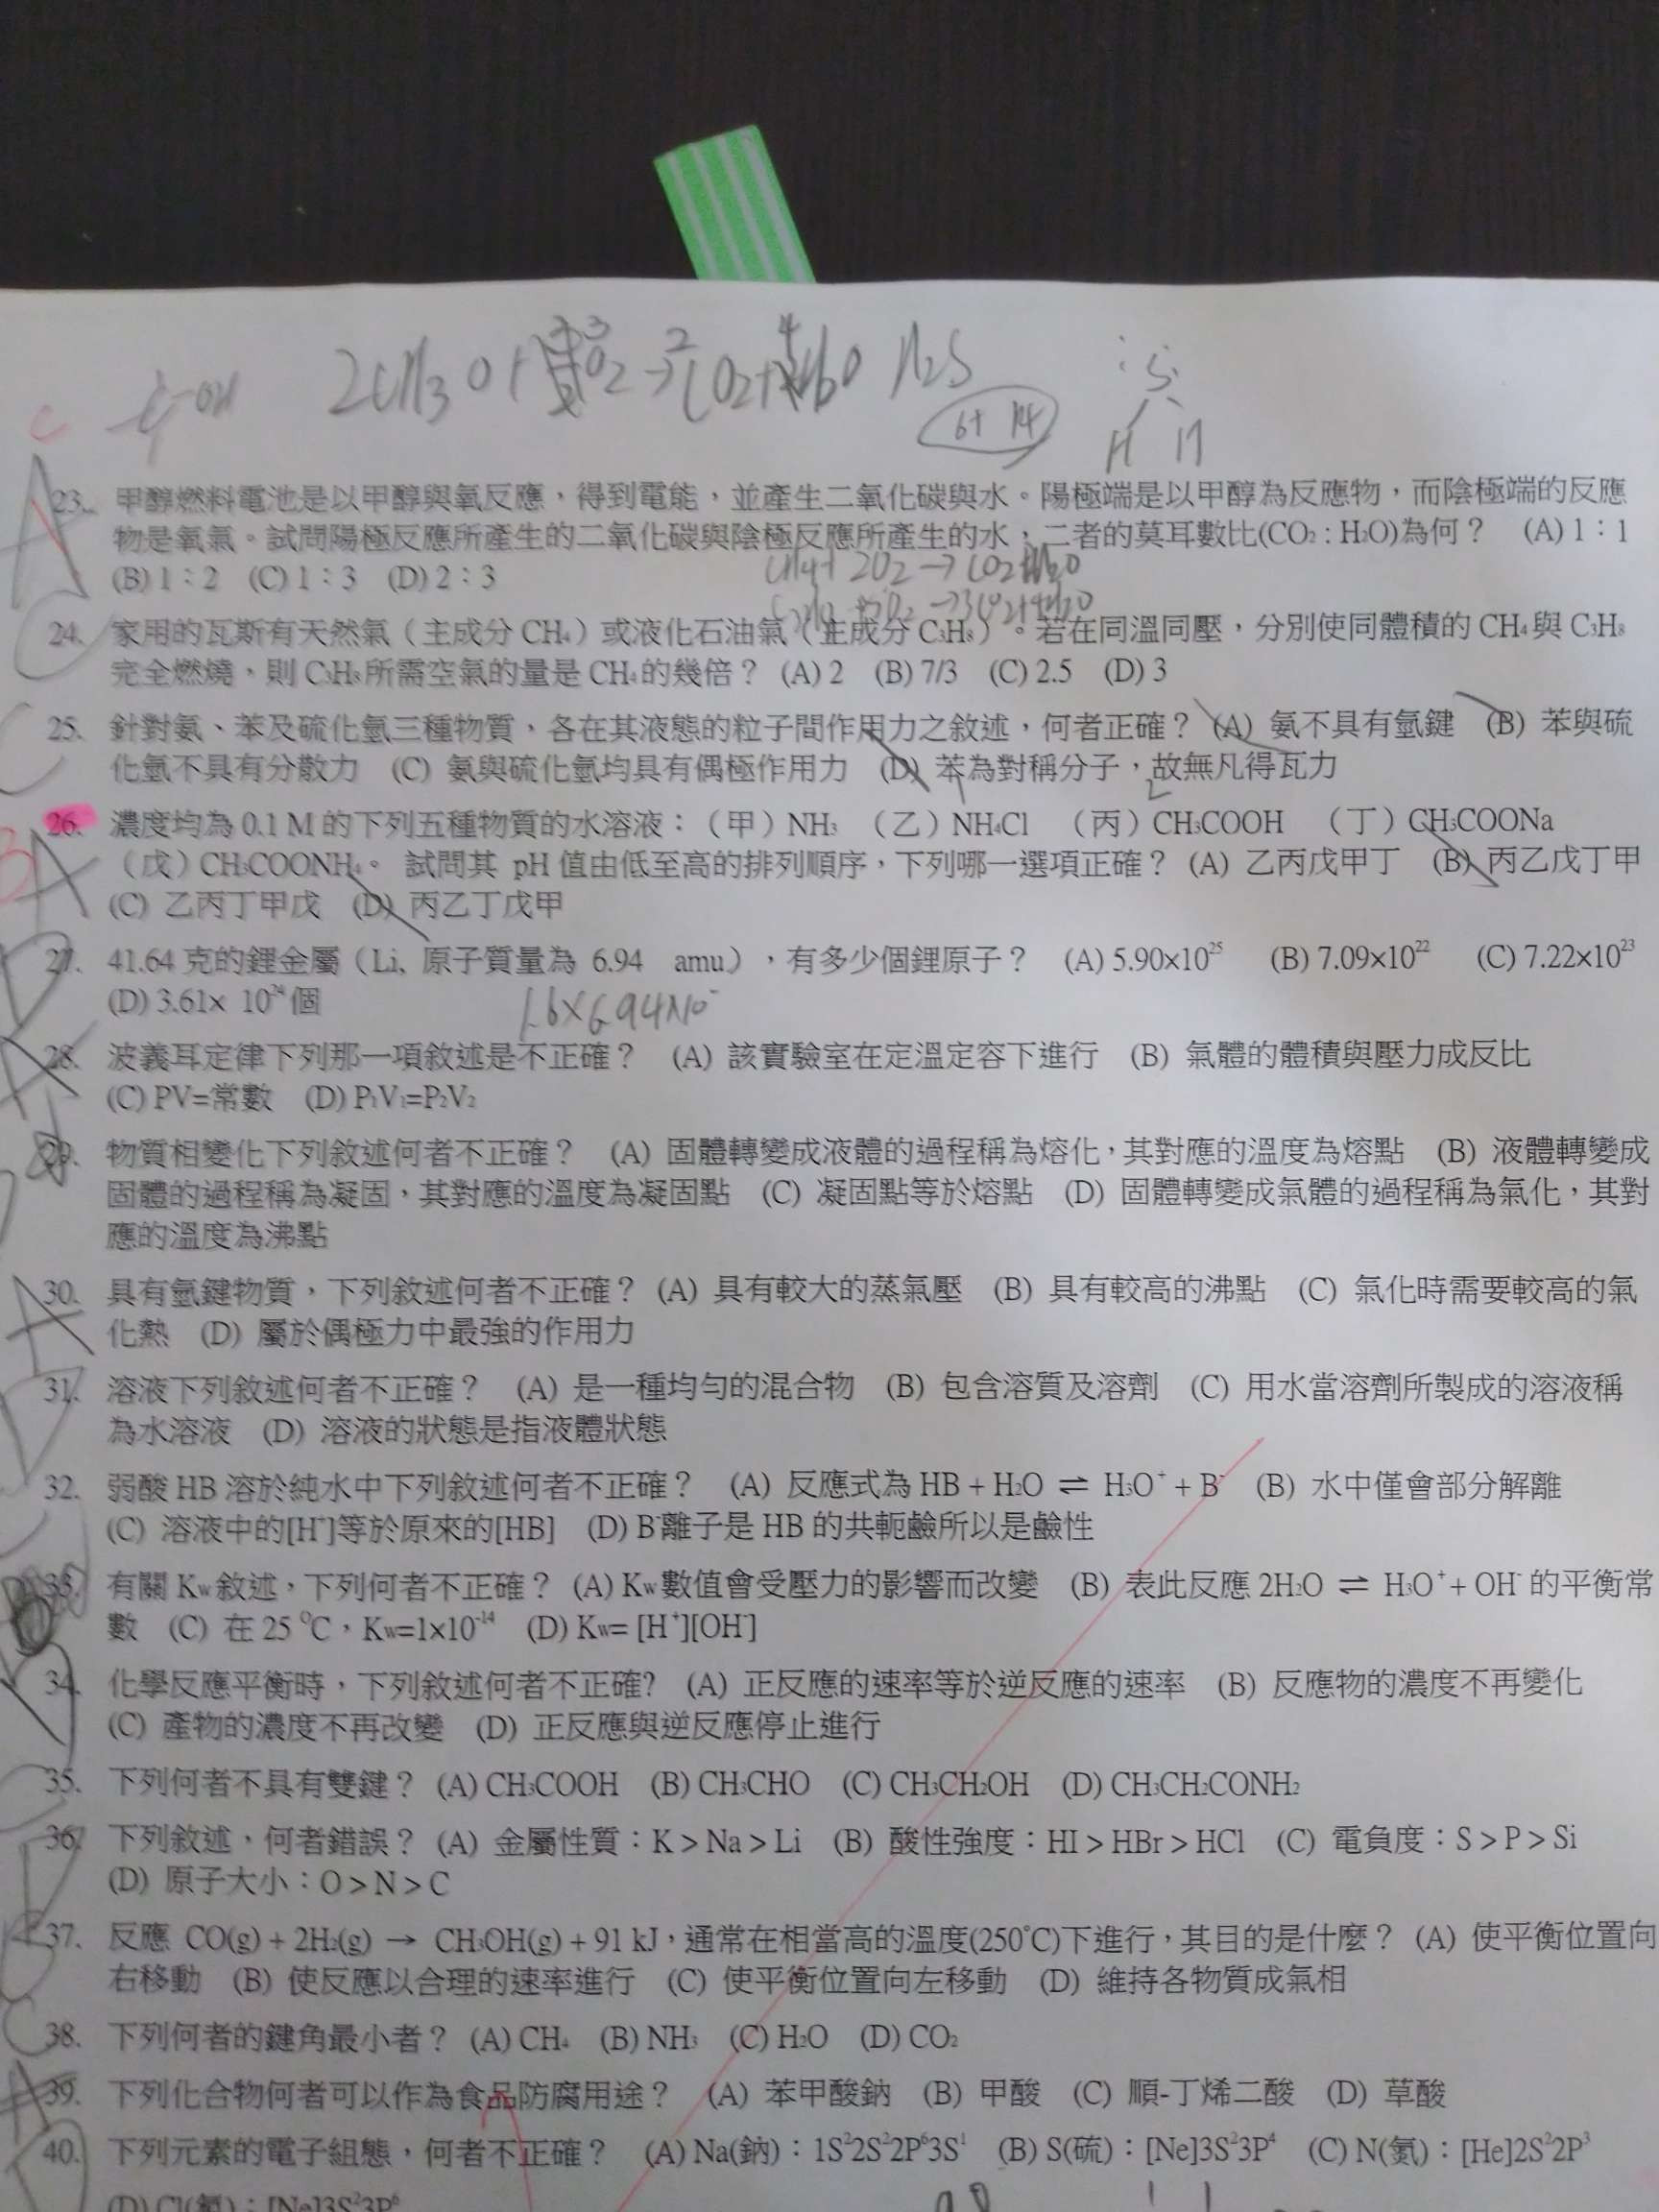 23. 甲醇燃料電池是以甲醇與氧反應，得到電能，並產生二氧化碳與水。陽極端是以甲醇為反應物，而陰極端的反應
物是氧氣。試問陽極反應所產生的二氧化碳與陰極反應所產生的水，二者的莫耳數比(CO₂ : H₂O)為何？ (A) 1：1
(B) 1：2 (C) 1：3 (D) 2：3
24. 家用的瓦斯有天然氣（主成分 CH₄）或液化石油氣（主成分 C₃H₈）。若在同溫同壓，分別使同體積的 CH₄ 與 C₃H₈
完全燃燒，則 C₃H₈ 所需空氣的量是 CH₄ 的幾倍？ (A) 2 (B) 7/3 (C) 2.5 (D) 3
25. 針對氨、苯及硫化氫三種物質，各在其液態的粒子間作用力之敘述，何者正確？ (A) 氨不具有氫鍵 (B) 苯與硫
化氫不具有分散力 (C) 氨與硫化氫均具有偶極作用力 (D) 苯為對稱分子，故無凡得瓦力
26. 濃度均為 0.1 M 的下列五種物質的水溶液：（甲）NH₃ （乙）NH₄Cl （丙）CH₃COOH （丁）CH₃COONa
（戊）CH₃COONH₄。 試問其 pH 值由低至高的排列順序，下列哪一選項正確？ (A) 乙丙戊甲丁 (B) 丙乙戊丁甲
(C) 乙丙丁甲戊 (D) 丙乙丁戊甲
27. 41.64 克的鋰金屬（Li, 原子質量為 6.94 amu），有多少個鋰原子？ (A) 5.90×10²⁵ (B) 7.09×10²² (C) 7.22×10²³
(D) 3.61× 10²⁴ 個
28. 波義耳定律下列那一項敘述是不正確？ (A) 該實驗室在定溫定容下進行 (B) 氣體的體積與壓力成反比
(C) PV=常數 (D) P₁V₁=P₂V₂
29. 物質相變化下列敘述何者不正確？ (A) 固體轉變成液體的過程稱為熔化，其對應的溫度為熔點 (B) 液體轉變成
固體的過程稱為凝固，其對應的溫度為凝固點 (C) 凝固點等於熔點 (D) 固體轉變成氣體的過程稱為氣化，其對
應的溫度為沸點
30. 具有氫鍵物質，下列敘述何者不正確？ (A) 具有較大的蒸氣壓 (B) 具有較高的沸點 (C) 氣化時需要較高的氣
化熱 (D) 屬於偶極力中最強的作用力
31. 溶液下列敘述何者不正確？ (A) 是一種均勻的混合物 (B) 包含溶質及溶劑 (C) 用水當溶劑所製成的溶液稱
為水溶液 (D) 溶液的狀態是指液體狀態
32. 弱酸 HB 溶於純水中下列敘述何者不正確？ (A) 反應式為 HB + H₂O ⇌ H₃O⁺ + B⁻ (B) 水中僅會部分解離
(C) 溶液中的[H⁺]等於原來的[HB] (D) B⁻離子是 HB 的共軛鹼所以是鹼性
33. 有關 Kw 敘述，下列何者不正確？ (A) Kw 數值會受壓力的影響而改變 (B) 表此反應 2H₂O ⇌ H₃O⁺ + OH⁻ 的平衡常
數 (C) 在 25 ℃，Kw=1×10⁻¹⁴ (D) Kw= [H⁺][OH⁻]
34. 化學反應平衡時，下列敘述何者不正確? (A) 正反應的速率等於逆反應的速率 (B) 反應物的濃度不再變化
(C) 產物的濃度不再改變 (D) 正反應與逆反應停止進行
35. 下列何者不具有雙鍵？ (A) CH₃COOH (B) CH₃CHO (C) CH₃CH₂OH (D) CH₃CH₂CONH₂
36. 下列敘述，何者錯誤？ (A) 金屬性質：K > Na > Li (B) 酸性強度：HI > HBr > HCl (C) 電負度：S > P > Si
(D) 原子大小：O > N > C
37. 反應 CO(g) + 2H₂(g) → CH₃OH(g) + 91 kJ，通常在相當高的溫度(250℃)下進行，其目的是什麼？ (A) 使平衡位置向
右移動 (B) 使反應以合理的速率進行 (C) 使平衡位置向左移動 (D) 維持各物質成氣相
38. 下列何者的鍵角最小者？ (A) CH₄ (B) NH₃ (C) H₂O (D) CO₂
39. 下列化合物何者可以作為食品防腐用途？ (A) 苯甲酸鈉 (B) 甲酸 (C) 順-丁烯二酸 (D) 草酸
40. 下列元素的電子組態，何者不正確？ (A) Na(鈉)：1S²2S²2P⁶3S¹ (B) S(硫)：[Ne]3S²3P⁴ (C) N(氮)：[He]2S²2P³
(D) Cl(氯)：[Ne]3S²3P⁶